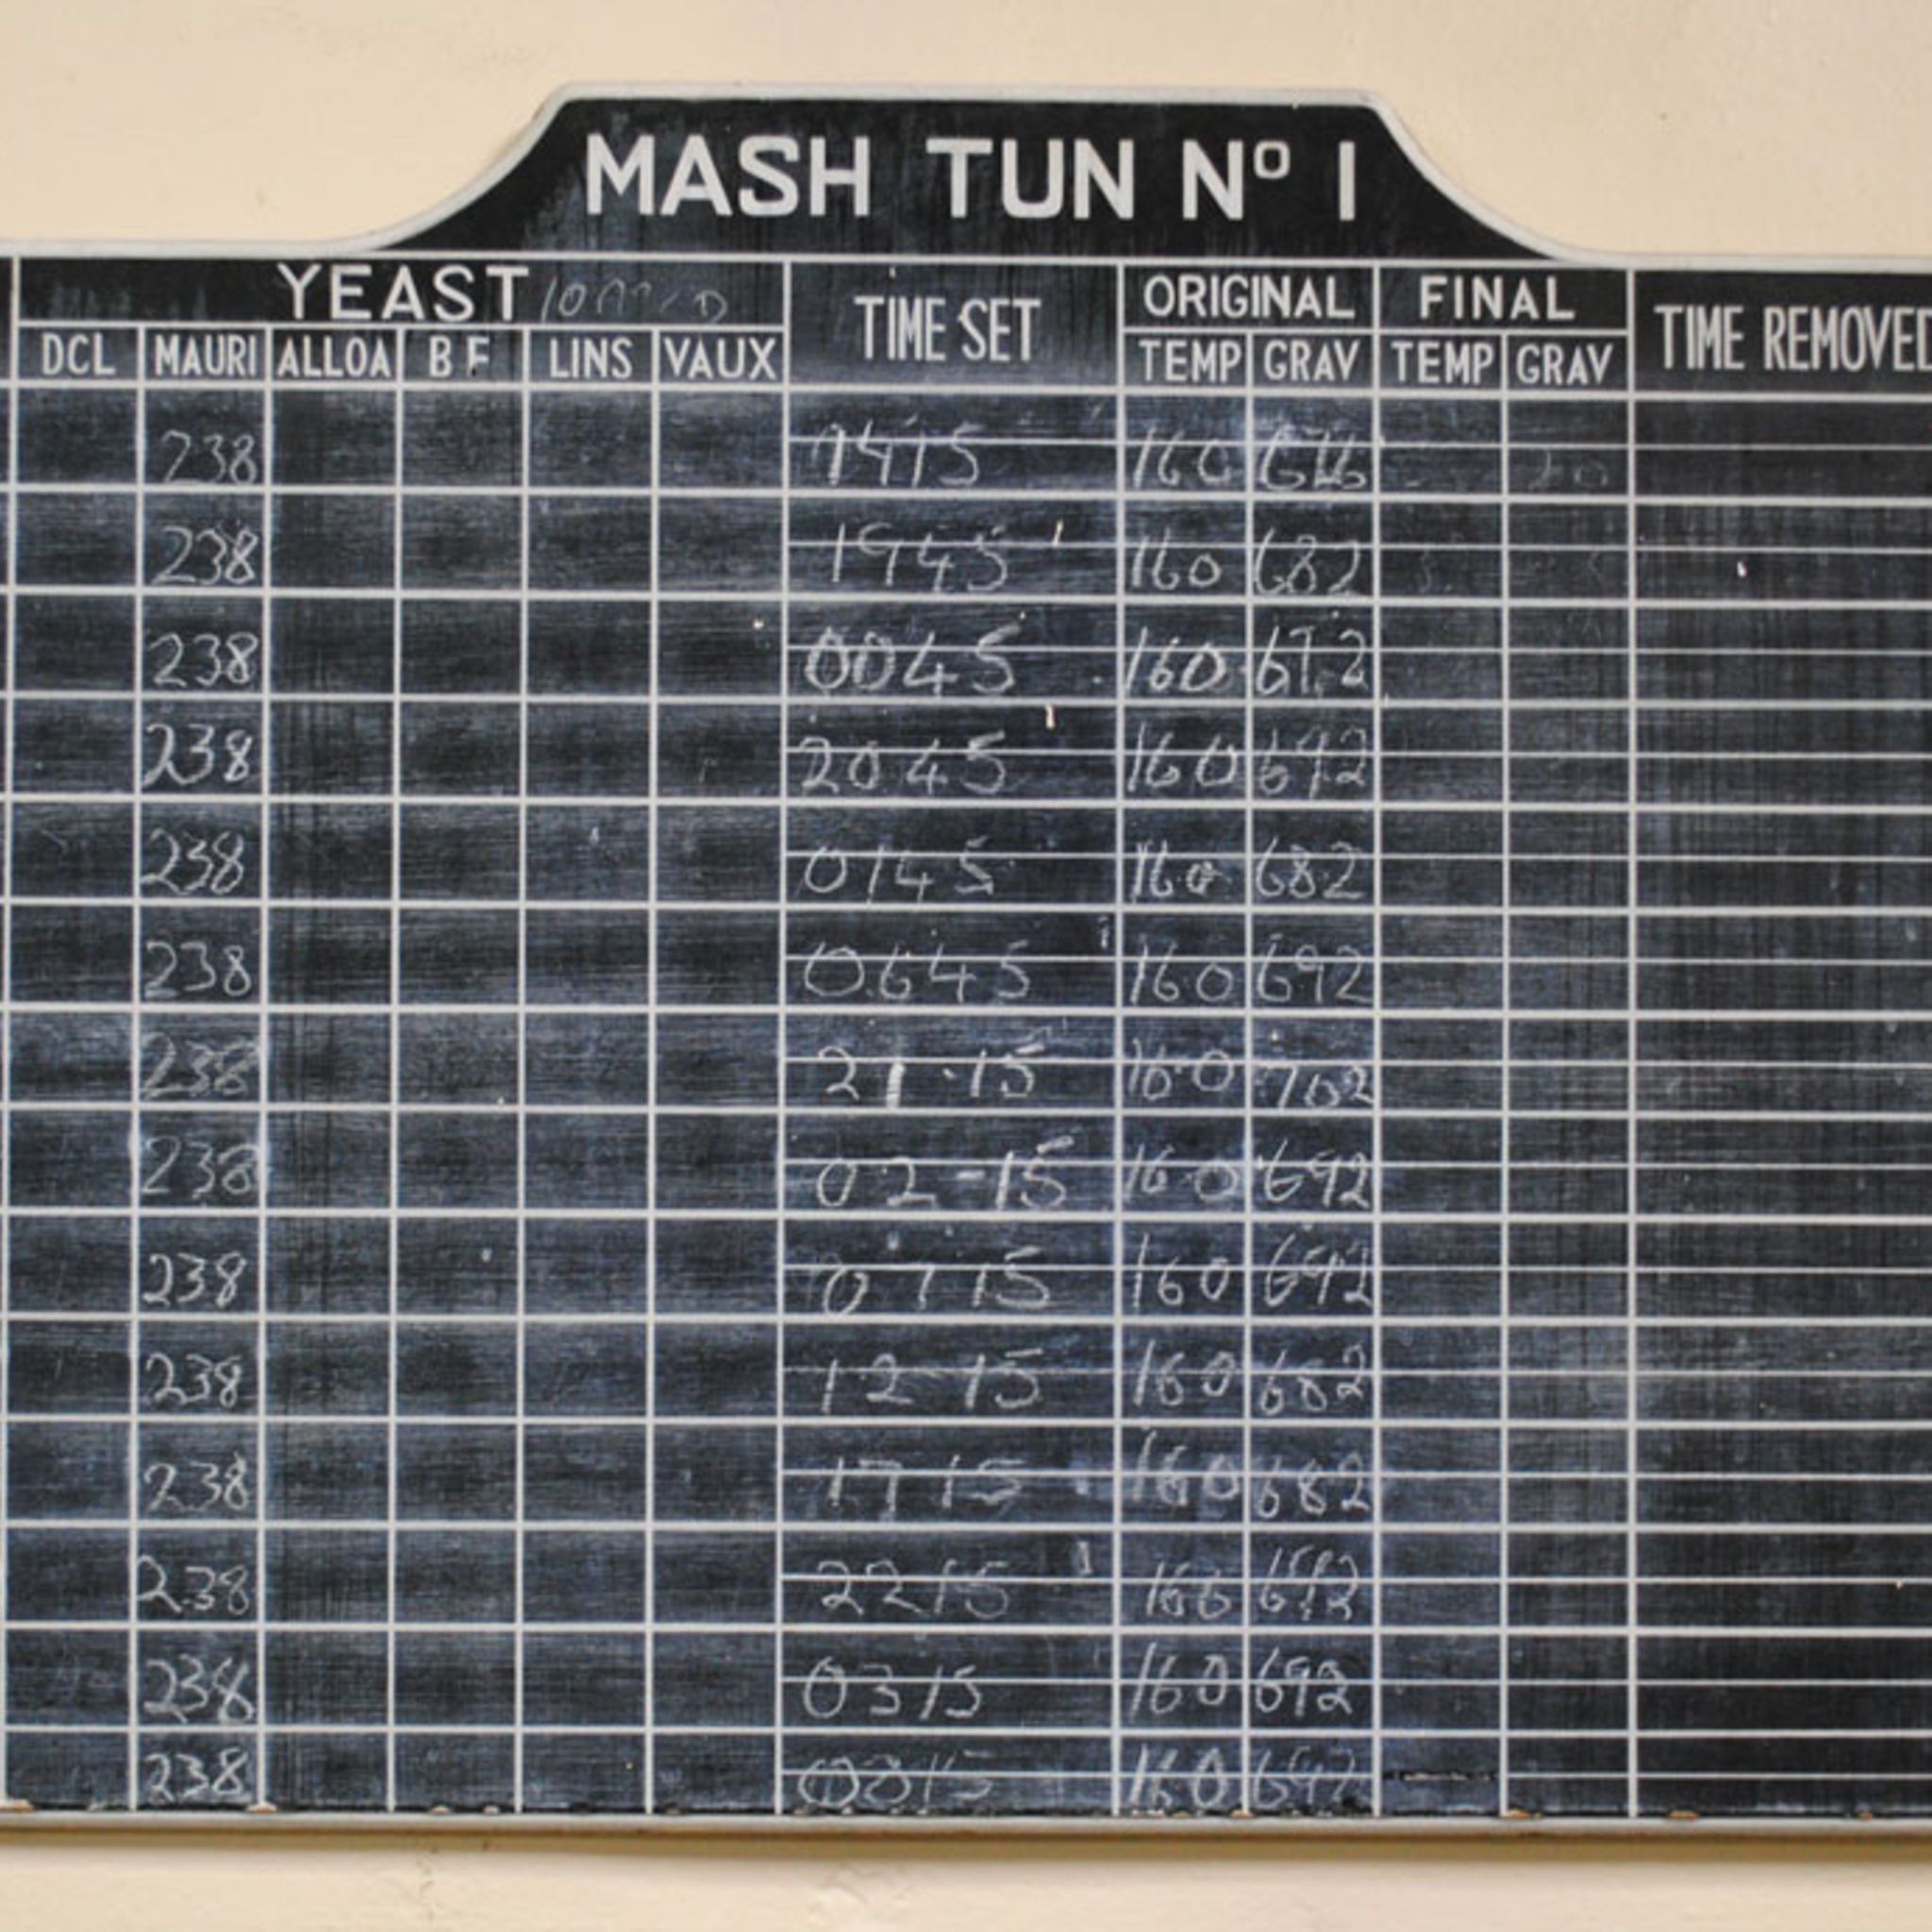 MASH TUN Nº 1
YEAST TIME SET ORIGINAL FINAL TIME REMOVED
DCL MAURI ALLOA B F LINS VAUX TEMP GRAV TEMP GRAV
238 160
238 1945 160 682
238 0045 160 672
238 2045 160 692
238 0145 160 682
238 0645 160 692
238 21·15 160 702
238 02-15 160 692
238 0715 160 692
238 12 15 160 682
238 1715 160 682
238 2215 160 692
238 0315 160 692
238 0815 160 692